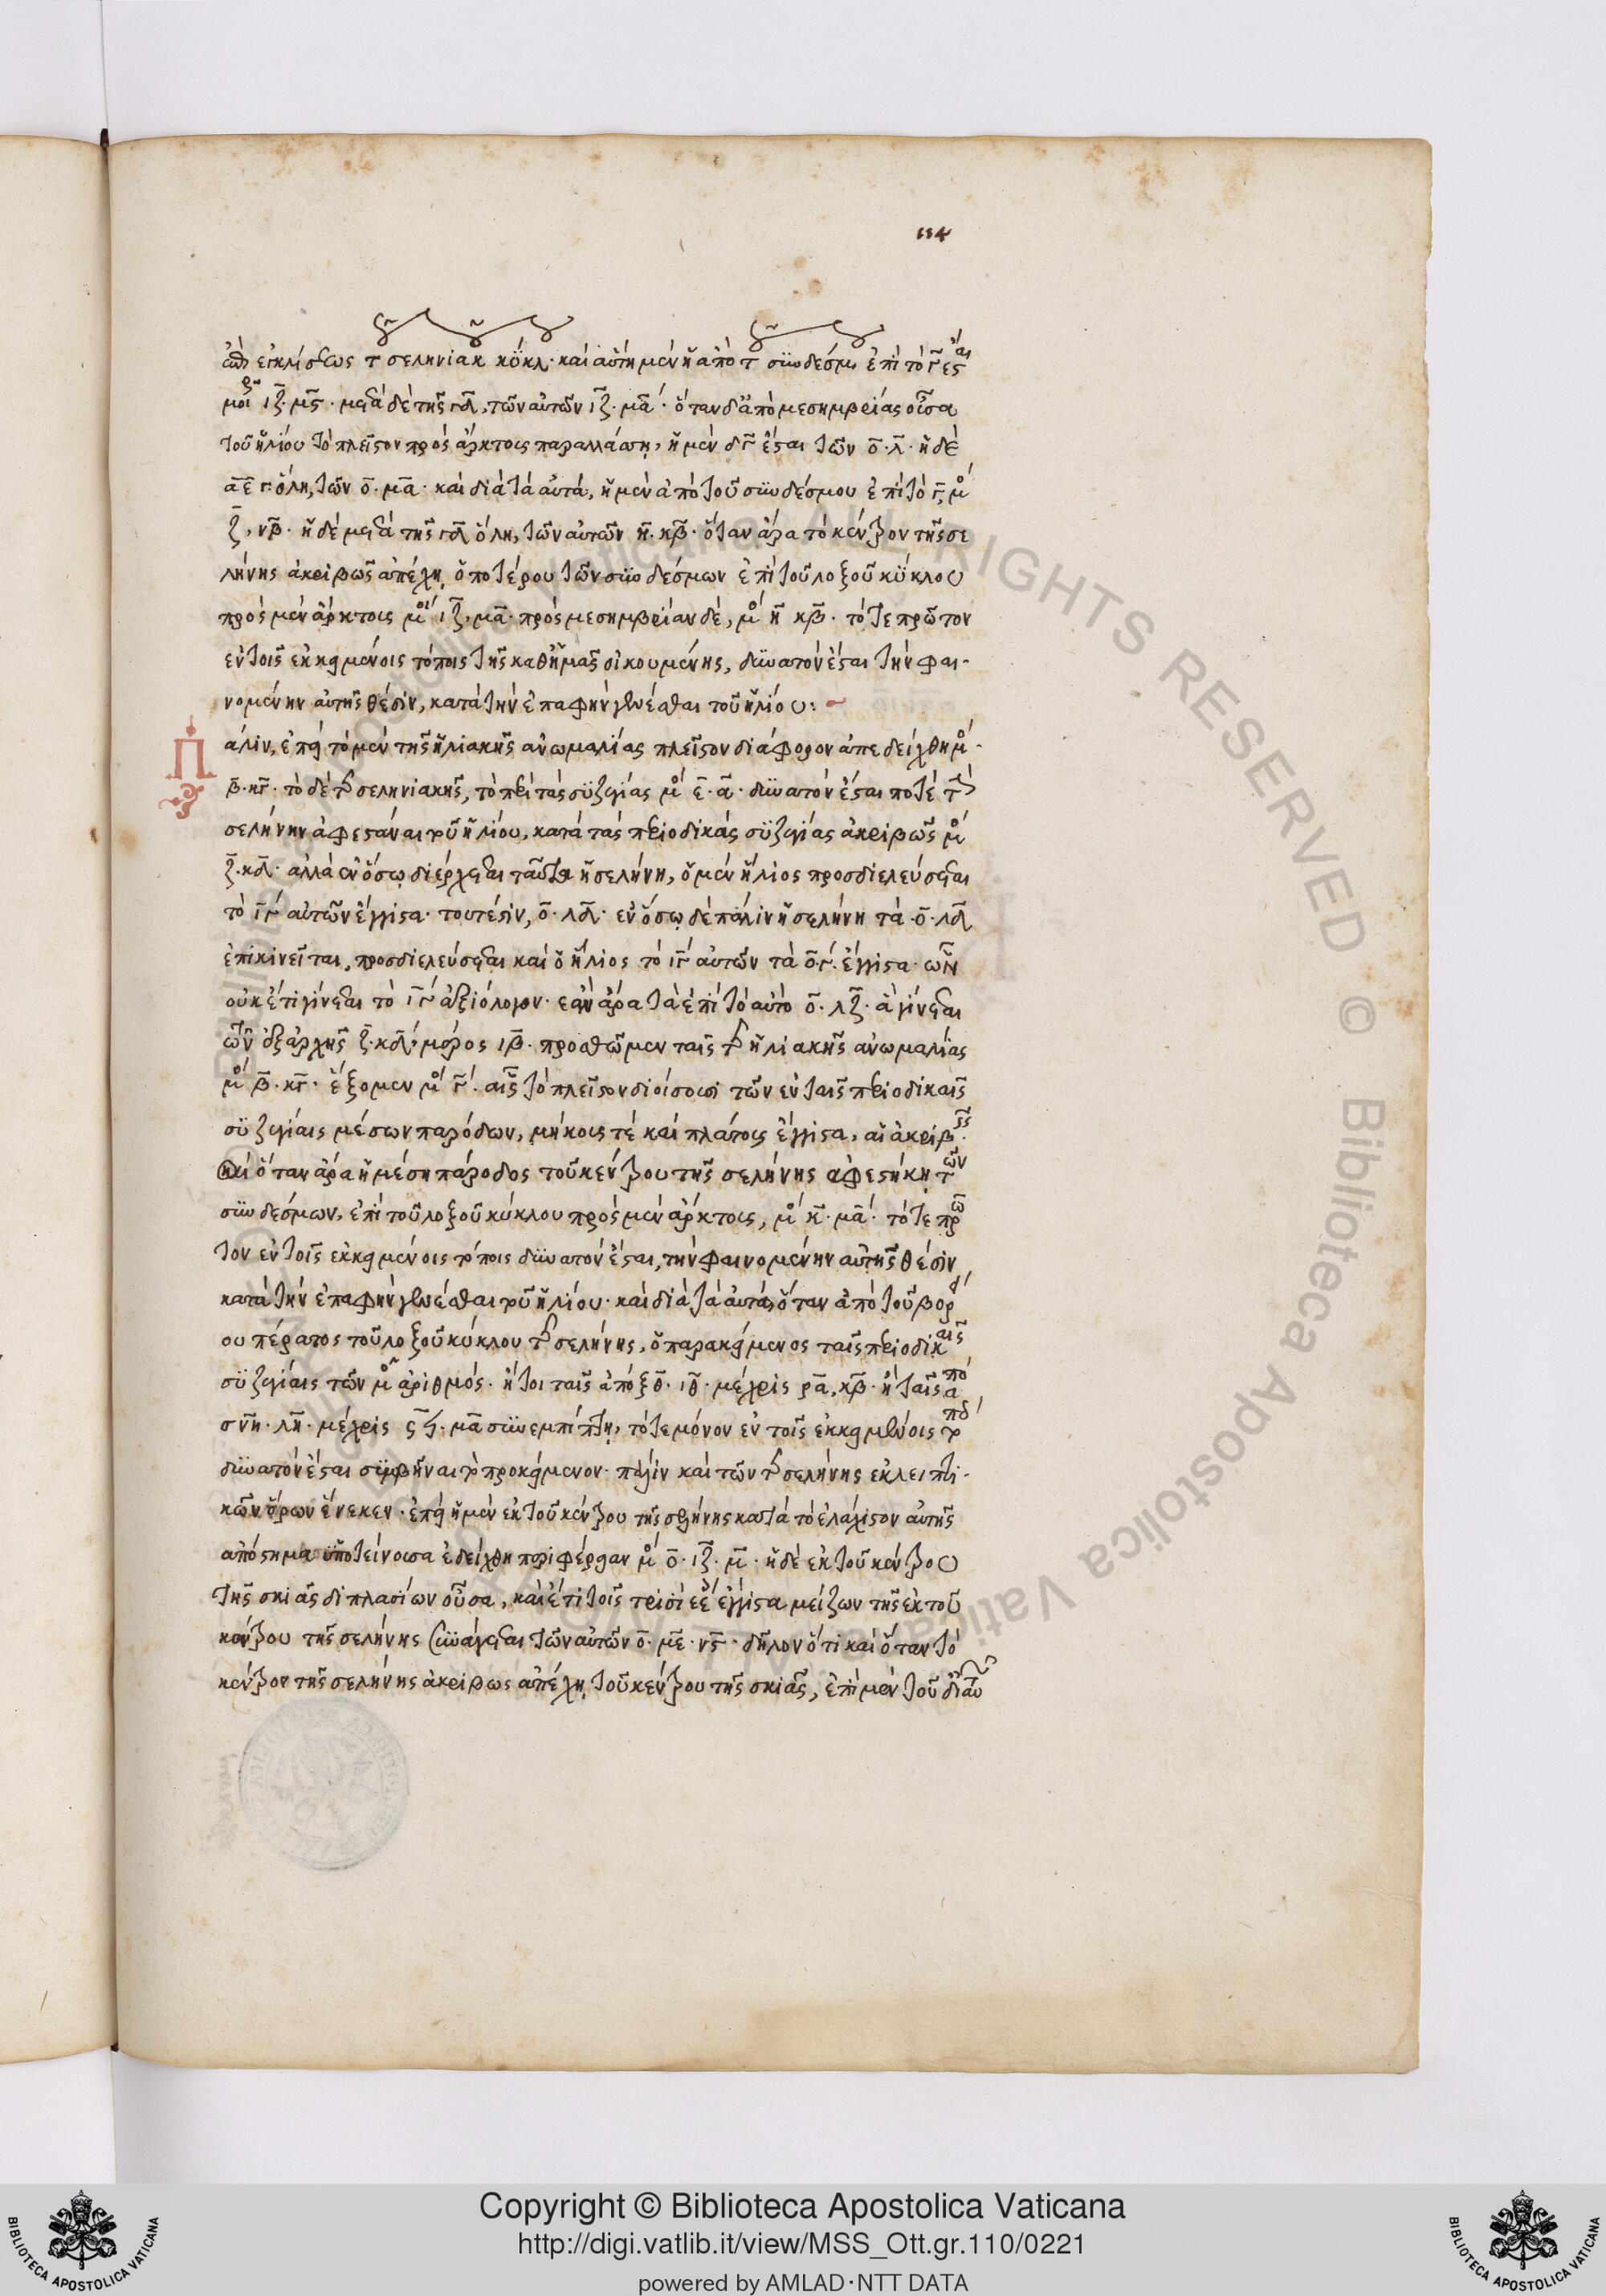 114
ἐγκλίσεως τ σεληνιακ κύκλ· καὶ αὕτη μὲν ἡ ἀπὸ τ συνδέσμ ἐπὶ τὸ γ̅ ἔσται
μοι ιζ̅· μϛ̅· μετὰ δὲ τῆς γδ̅, τῶν αὐτῶν ιζ̅· μα̅· ὅταν δ' ἀπὸ μεσημβρίας οὖσα
τοῦ ἡλίου τὸ πλεῖστον πρὸς ἄρκτους παραλλάσσῃ, ἡ μὲν δγ̅ ἔσται τῶν ο̅· λ̅· ἡ δὲ
α̅ε̅γ ὅλη, τῶν ο̅· μα̅· καὶ διὰ τὰ αὐτά, ἡ μὲν ἀπὸ τοῦ συνδέσμου ἐπὶ τὸ γ̅, μο
ζ̅, νβ̅· ἡ δὲ μετὰ τῆς γδ̅ ὅλη, τῶν αὐτῶν η̅· κβ̅· ὅταν ἄρα τὸ κέντρον τῆς σε
λήνης ἀκριβῶς ἀπέχῃ ὁποτέρου τῶν συνδέσμων ἐπὶ τοῦ λοξοῦ κύκλου
πρὸς μὲν ἄρκτους μοι ιζ̅, μα̅· πρὸς μεσημβρίαν δέ, μο η̅ κβ̅· τότε πρῶτον
ἐν τοῖς ἐκκειμένοις τόποις τῆς καθ' ἡμᾶς οἰκουμένης, δυνατὸν ἔσται τὴν φαι-
νομένην αὐτῆς θέσιν, κατὰ τὴν ἐπαφὴν γενέσθαι τοῦ ἡλίου:
Πάλιν, ἐπεὶ τὸ μὲν τῆς ἡλιακῆς ἀνωμαλίας πλεῖστον διάφορον ἀπεδείχθη μο·
β̅· κγ̅· τὸ δὲ τῆς σεληνιακῆς, τὸ περὶ τὰς συζυγίας μο ε̅· α̅· δυνατὸν ἔσται ποτὲ τὴν
σελήνην ἀφεστάναι τοῦ ἡλίου, κατὰ τὰς περιοδικὰς συζυγίας ἀκριβῶς μο
ζ̅· κδ̅· ἀλλὰ ἐν ὅσῳ διέρχεται ταῦτα ἡ σελήνη, ὁ μὲν ἥλιος προσδιελεύσεται
τὸ ιγ̅ αὐτῶν ἔγγιστα· τουτέστιν, ο̅· λδ̅· ἐν ὅσῳ δὲ πάλιν ἡ σελήνη τὰ ο̅· λδ̅
ἐπικινεῖται, προσδιελεύσεται καὶ ὁ ἥλιος τὸ ιγ̅ αὐτῶν τὰ ο̅· γ̅· ἔγγιστα· ὧν
οὐκέτι γίνεται τὸ ιγ̅ ἀξιόλογον· ἐὰν ἄρα τὰ ἐπὶ τὸ αὐτὸ ο̅· λζ̅· ἃ γίνεται
τῶν ἐξ ἀρχῆς ζ̅· κδ̅· μέρος ιβ̅· προσθῶμεν ταῖς τῆς ἡλιακῆς ἀνωμαλίας
μο β̅· κγ̅· ἕξομεν μο γ̅· αἷς τὸ πλεῖστον διοίσουσι τῶν ἐν ταῖς περιοδικαῖς
συζυγίαις μέσων παρόδων, μήκους τὲ καὶ πλάτους ἔγγιστα, αἱ ἀκριβ
καὶ ὅταν ἄρα ἡ μέση πάροδος τοῦ κέντρου τῆς σελήνης ἀφεστήκῃ τῶν
συνδέσμων, ἐπὶ τοῦ λοξοῦ κύκλου πρὸς μὲν ἄρκτους, μο κ̅· μα̅· τότε πρῶ
τον ἐν τοῖς ἐκκειμένοις τόποις δυνατὸν ἔσται, τὴν φαινομένην αὐτῆς θέσιν
κατὰ τὴν ἐπαφὴν γενέσθαι τοῦ ἡλίου· καὶ διὰ τὰ αὐτά, ὅταν ἀπὸ τοῦ βορεί
ου πέρατος τοῦ λοξοῦ κύκλου τῆς σελήνης, ὁ παρακείμενος ταῖς περιοδικαῖς
συζυγίαις τῶν μο ἀριθμός· ἤτοι ταῖς ἀπὸ ξθ̅· ιθ̅· μέχρις ρα̅, κβ̅· ἢ ταῖς ἀπὸ
σνη̅· λη̅· μέχρις μα̅ συνεμπίπτῃ, τότε μόνον ἐν τοῖς ἐκκειμένοις τόποις
δυνατὸν ἔσται συμβῆναι τὸ προκείμενον· πάλιν καὶ τῶν τῆς σελήνης ἐκλειπτι-
κῶν ὅρων ἕνεκεν· ἐπεὶ ἡ μὲν ἐκ τοῦ κέντρου τῆς σελήνης κατὰ τὸ ἐλάχιστον αὐτῆς
ἀπόστημα ὑποτείνουσα ἐδείχθη περιφέρειαν μο ο̅· ιζ̅· μ̅· ἡ δὲ ἐκ τοῦ κέντρου
τῆς σκιᾶς διπλασίων οὖσα, καὶ ἔτι τοῖς τρισὶ ἔγγιστα μείζων τῆς ἐκ τοῦ
κέντρου τῆς σελήνης συνάγεται τῶν αὐτῶν ο̅· με̅· νϛ̅· δῆλον ὅτι καὶ ὅταν τὸ
κέντρον τῆς σελήνης ἀκριβῶς ἀπέχῃ τοῦ κέντρου τῆς σκιᾶς, ἐπὶ μὲν τοῦ διὰ
ALL RIGHTS RESERVED © Biblioteca Apostolica Vaticana
Copyright © Biblioteca Apostolica Vaticana
http://digi.vatlib.it/view/MSS_Ott.gr.110/0221
powered by AMLAD·NTT DATA
BIBLIOTECA APOSTOLICA VATICANA
BIBLIOTECA APOSTOLICA VATICANA